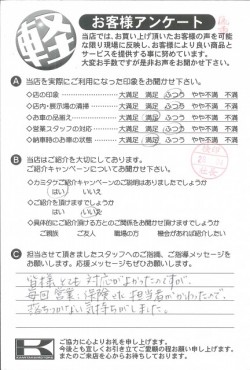 軽
お客様アンケート
当店では、お買い上げ頂いたお客様の声を可能
な限り現場に反映し、お客様により良い商品と
サービスを提供する事に努めています。
大変お手数ですが是非お声をお聞かせ下さい。
A 当店を実際にご利用になった印象をお聞かせ下さい。
◇店の印象 大満足 満足 ふつう やや不満 不満
◇店内・展示場の清掃 大満足 満足 ふつう やや不満 不満
◇お車の品揃え 大満足 満足 ふつう やや不満 不満
◇営業スタッフの対応 大満足 満足 ふつう やや不満 不満
◇納車時のお車の状態 大満足 満足 ふつう やや不満 不満
B 当店はご紹介を大切にしてあります。
ご紹介キャンペーンについてお聞かせ下さい。
◇カミタケご紹介キャンペーンのご説明はありましたでしょうか
はい いいえ
◇ご紹介を頂けますでしょうか
はい いいえ
◇具体的にご紹介頂ける方とのご関係をお聞かせ頂けますでしょうか
ご親族 ご友人 職場の方 機会があれば紹介したい
C 担当させて頂きましたスタッフへのご指摘、ご指導メッセージを
お願いします。応援メッセージもぜひお願いします。
皆様とても対応がよかったのですが、
毎回営業、保険でも担当者がかわったので、
落ちつかない気持ちがしました。
ご協力に心よりお礼を申し上げます。
今後とも宜しくお引き立てご愛顧の程お願い申し上げます。
またのご来店を心からお待ちしております。